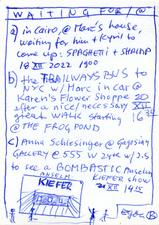 WAITING FOR/@
a) in Cairo, @ Marc's house,
waiting for him & Kyril to
come up: SPAGHETTI + SHRIMP
18 XII 2022 1900
b) the TRAILWAYS BUS to
NYC w/ Marc in car @
Karen's Flower Shoppe 20
after a nice/necessary XII
great WALK starting 1635
@ THE FROG POND
c) Anna Schlesinger @ Gagosian
GALLERY @ 555 W 24th w/ J.S.
to see a BOMBASTIC Anselm
Kiefer show
ANSELM
KIEFER
21 XII 1415